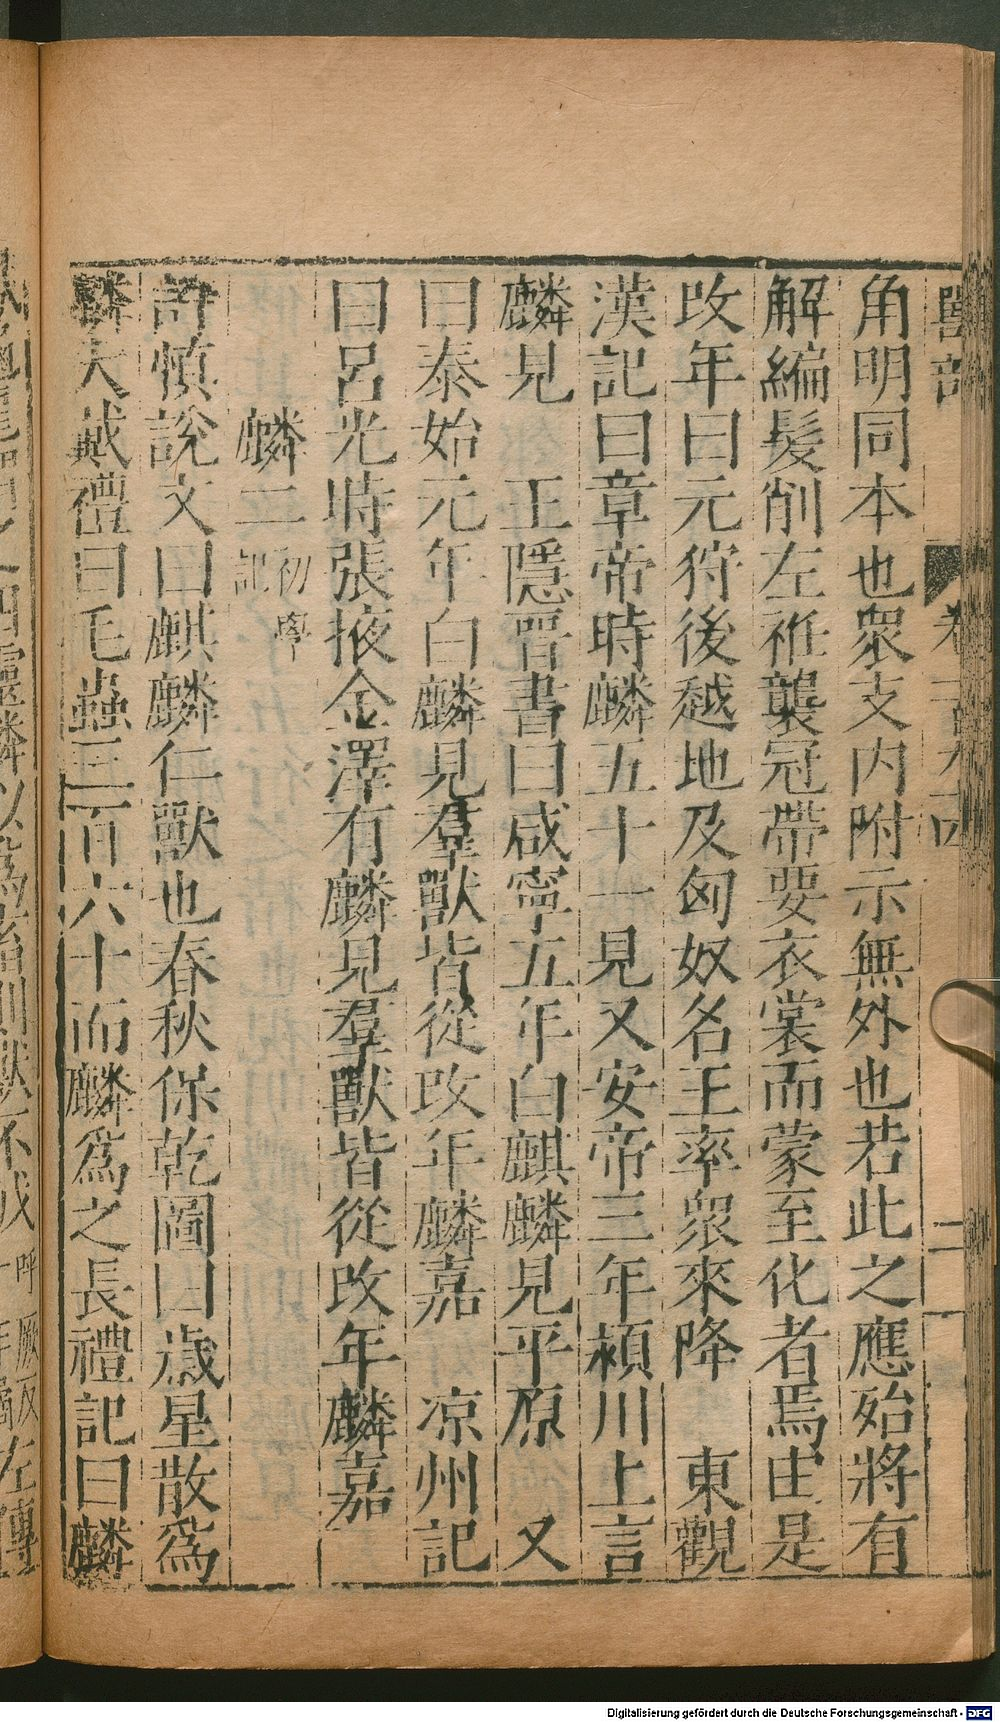 獸部 卷 二
角明同本也衆支内附示無外也若此之應始將有
解編髮削左袵襲冠帶要衣裳而蒙至化者焉由是
改年曰元狩後越地及匈奴名王率衆來降 東觀
漢記曰章帝時麟五十一見又安帝三年潁川上言
麟見 王隱晉書曰咸寧五年白麒麟見平原 又
曰泰始元年白麟見羣獸皆從改年麟嘉 凉州記
曰呂光時張掖金澤有麟見羣獸皆從改年麟嘉
麟二初學記
許慎說文曰麒麟仁獸也春秋保乾圖曰歲星散為
麟大戴禮曰毛蟲三百六十而麟為之長禮記曰麟
四靈麟以為畜則獸不 左傳
Digitalisierung gefördert durch die Deutsche Forschungsgemeinschaft - DFG